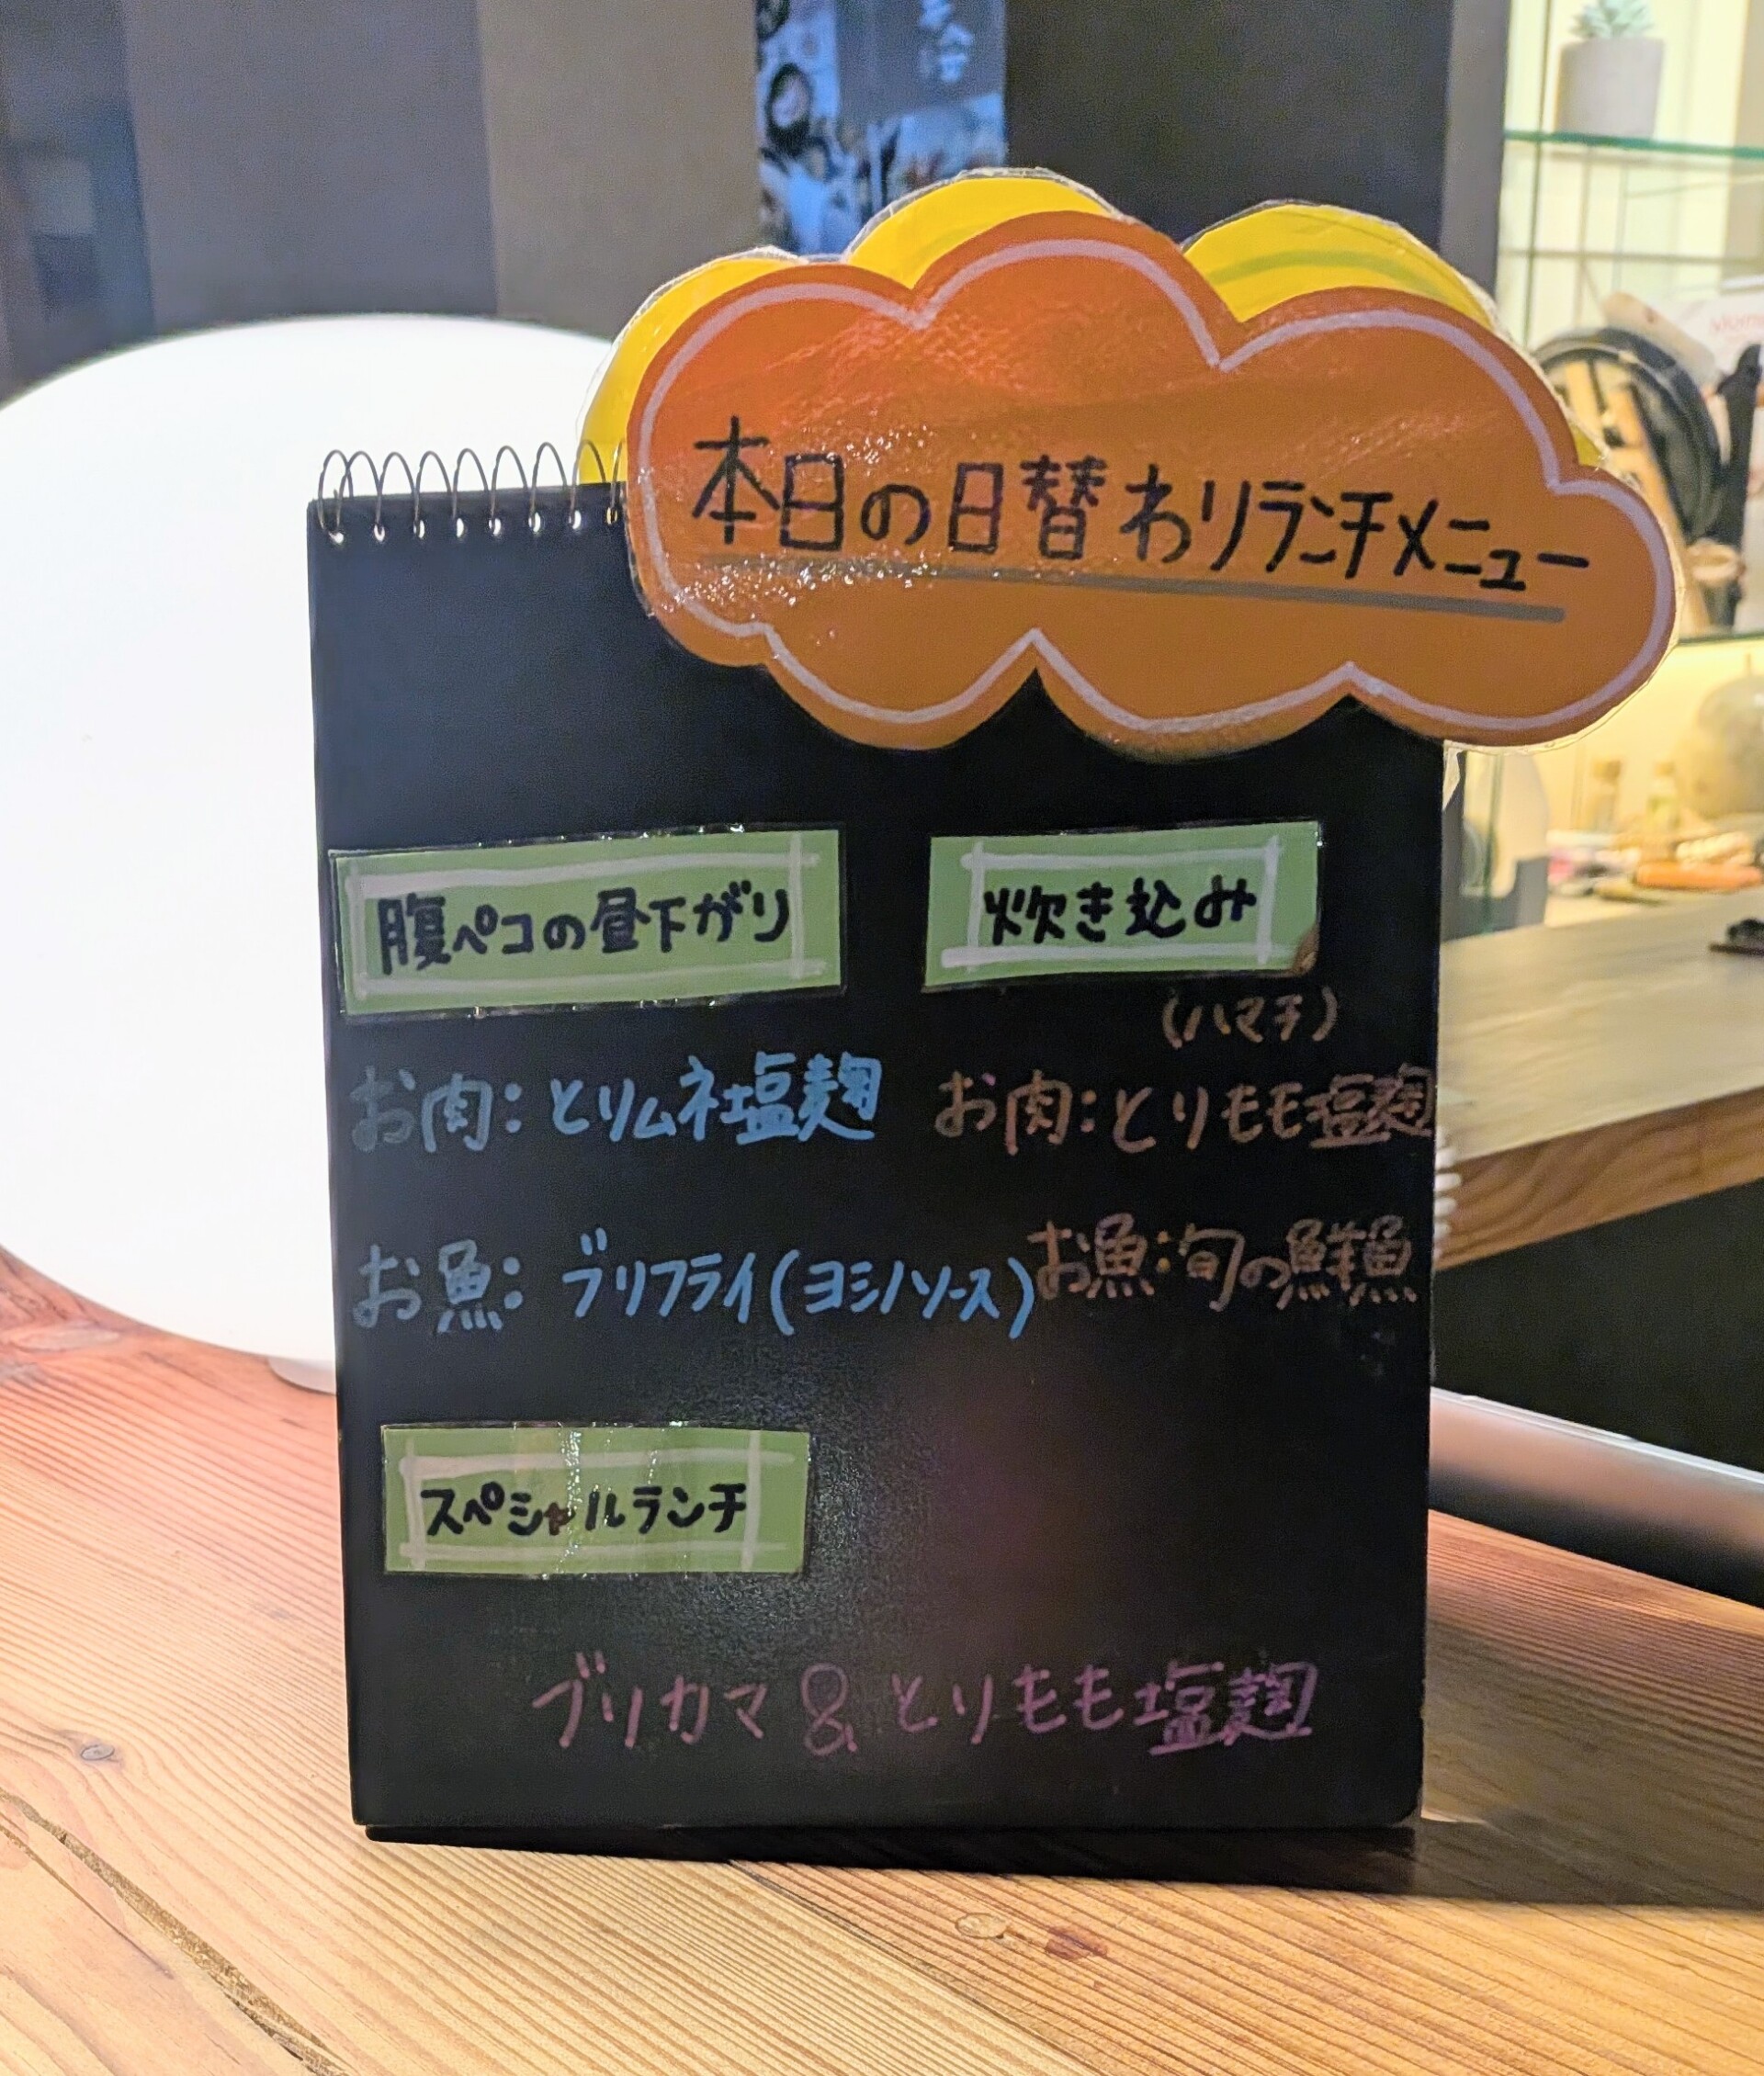 本日の日替わりランチメニュー
腹ペコの昼下がり
お肉:とりムネ塩麹
お魚:ブリフライ(ヨシノソース)
炊き込み
(ハマチ)
お肉:とりもも塩麹
お魚:旬の鮮魚
スペシャルランチ
ブリカマ&とりもも塩麹